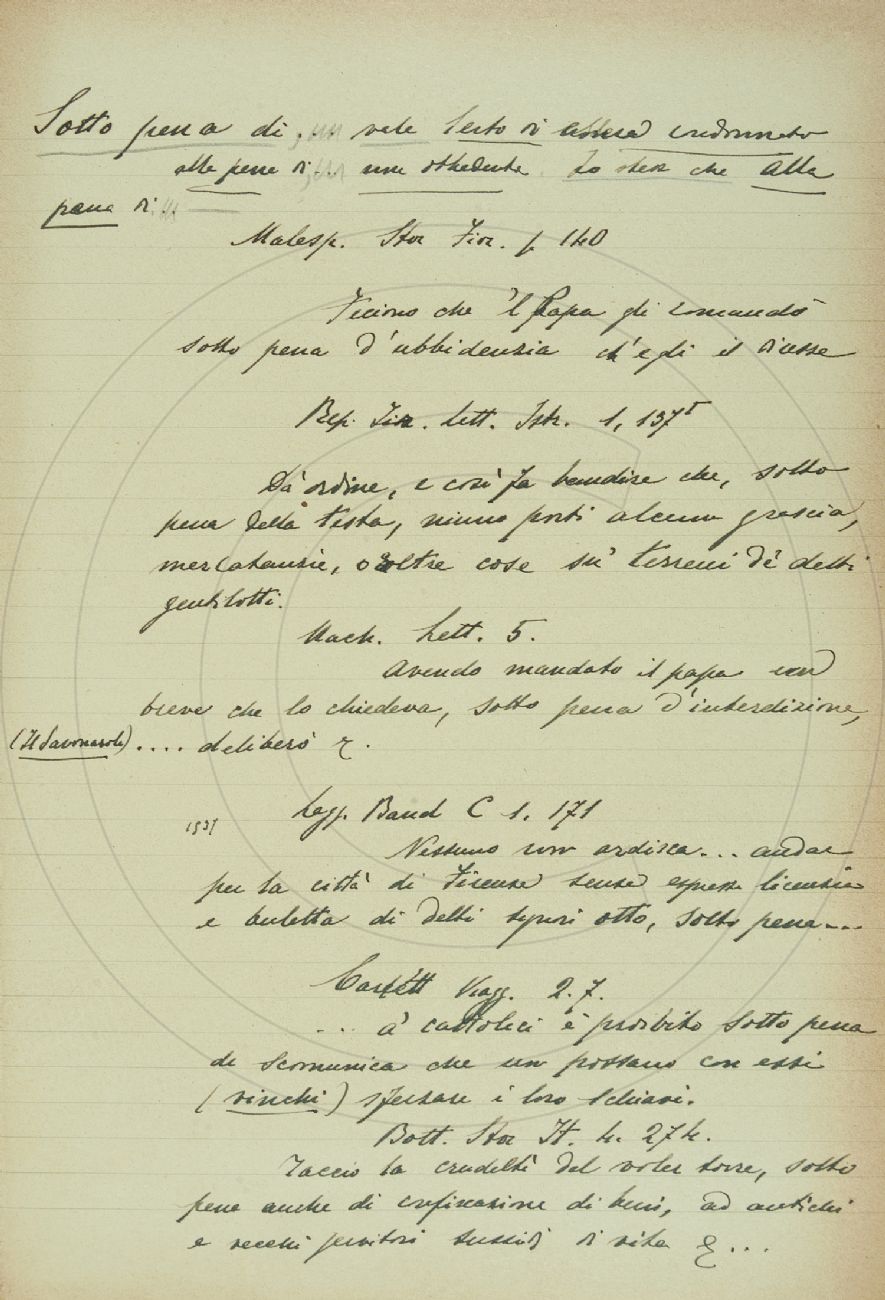 Sotto pena di... vale Certo di essere condannato
alle pene di... non obbediente. Lo stesso che Alla
pena di...
Malesp. Stor Fior. p 140
Feciono che 'l Papa gli comandò
sotto pena d'ubbidenzia ch'egli il
Rep. Fior. Lett. Istr. 1, 137
Dà ordine, e così fa bandire che, sotto
pena della testa, niuno porti alcuna grascia,
mercatanzie, o altre cose su' terreni de' detti
gentilotti.
Mach. Lett. 5.
Avendo mandato il papa un
breve che lo chiedeva, sotto pena d'interdizione,
(Il Savonarola).... deliberò
Legg. Band C 1. 171
Nessuno non ardisca... andar
per la città di Firenze senza espressa licenzia
e buletta di detti signori otto, sotto pena...
Carlett Viagg. 2.7.
... a' cattolici è proibito sotto pena
di scomunica che non possano con essi
(vinchi) sferzare i loro schiavi.
Bott. Stor It. 4. 274.
Taccio la crudeltà del voler torre, sotto
pena anche di confiscazione di beni, ad antichi
e vecchi servitori sussidi di vita ...